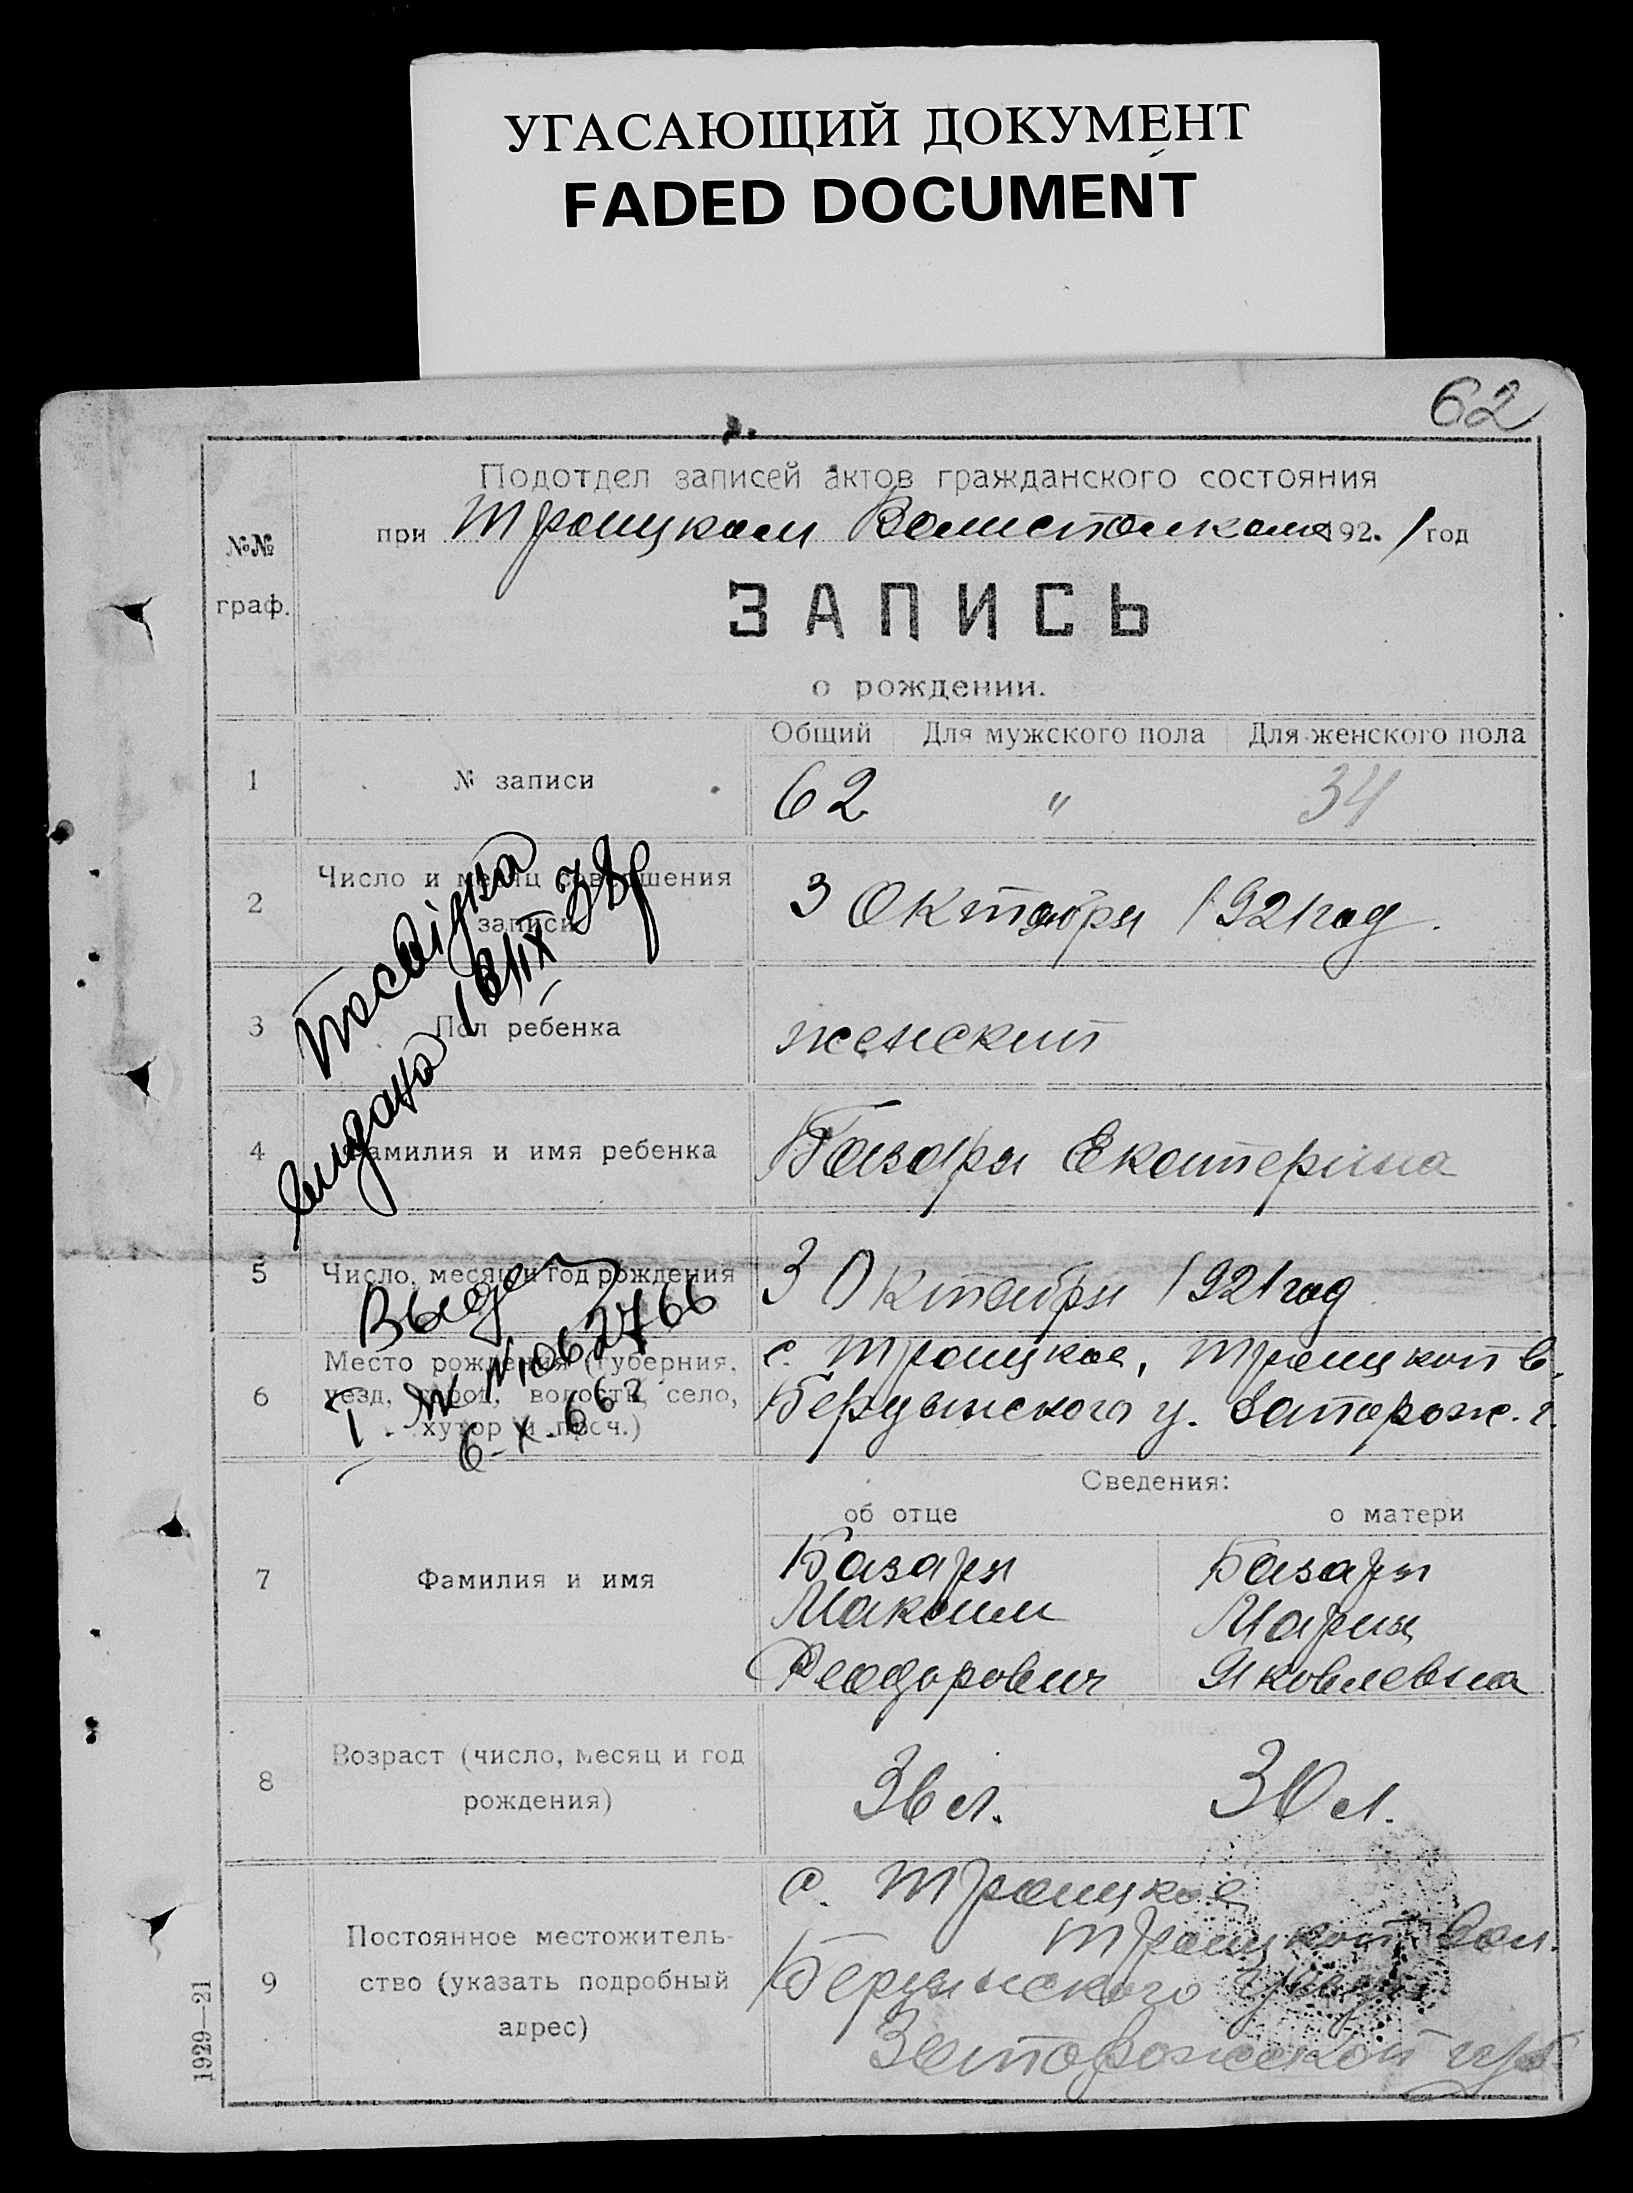 УГАСАЮЩИЙ ДОКУМЕНТ
FADED DOCUMENT
62
Подотдел записей актов гражданского состояния
при Троицком Волисполкоме 192.1 год
№№ граф.
ЗАПИСЬ
о рождении.
Общий Для мужского пола Для женского пола
1 № записи 62 " 34
2 Число и месяц совершения записи 3 Октября 1921 год.
3 Пол ребенка женский
4 Фамилия и имя ребенка Базари Екатерина
Посвідка
видана 16/IX 38р
5 Число, месяц и год рождения 3 Октября 1921 год
6 Место рождения (губерния, уезд, город, волость, село, хутор и проч.)
с. Троицкое, Троицкой в.
Бердянского у. Запорож. г.
Выдан
I ЯК №1062766
6-X-66г
Сведения:
об отце о матери
7 Фамилия и имя
Базари Базари
Максим Мария
Феодорович Яковлевна
8 Возраст (число, месяц и год рождения) 36 л. 30 л.
9 Постоянное местожитель-
ство (указать подробный
адрес)
с. Троицкое
Троицкой вол.
Бердянского уезда
Запорожской губ.
1929—21